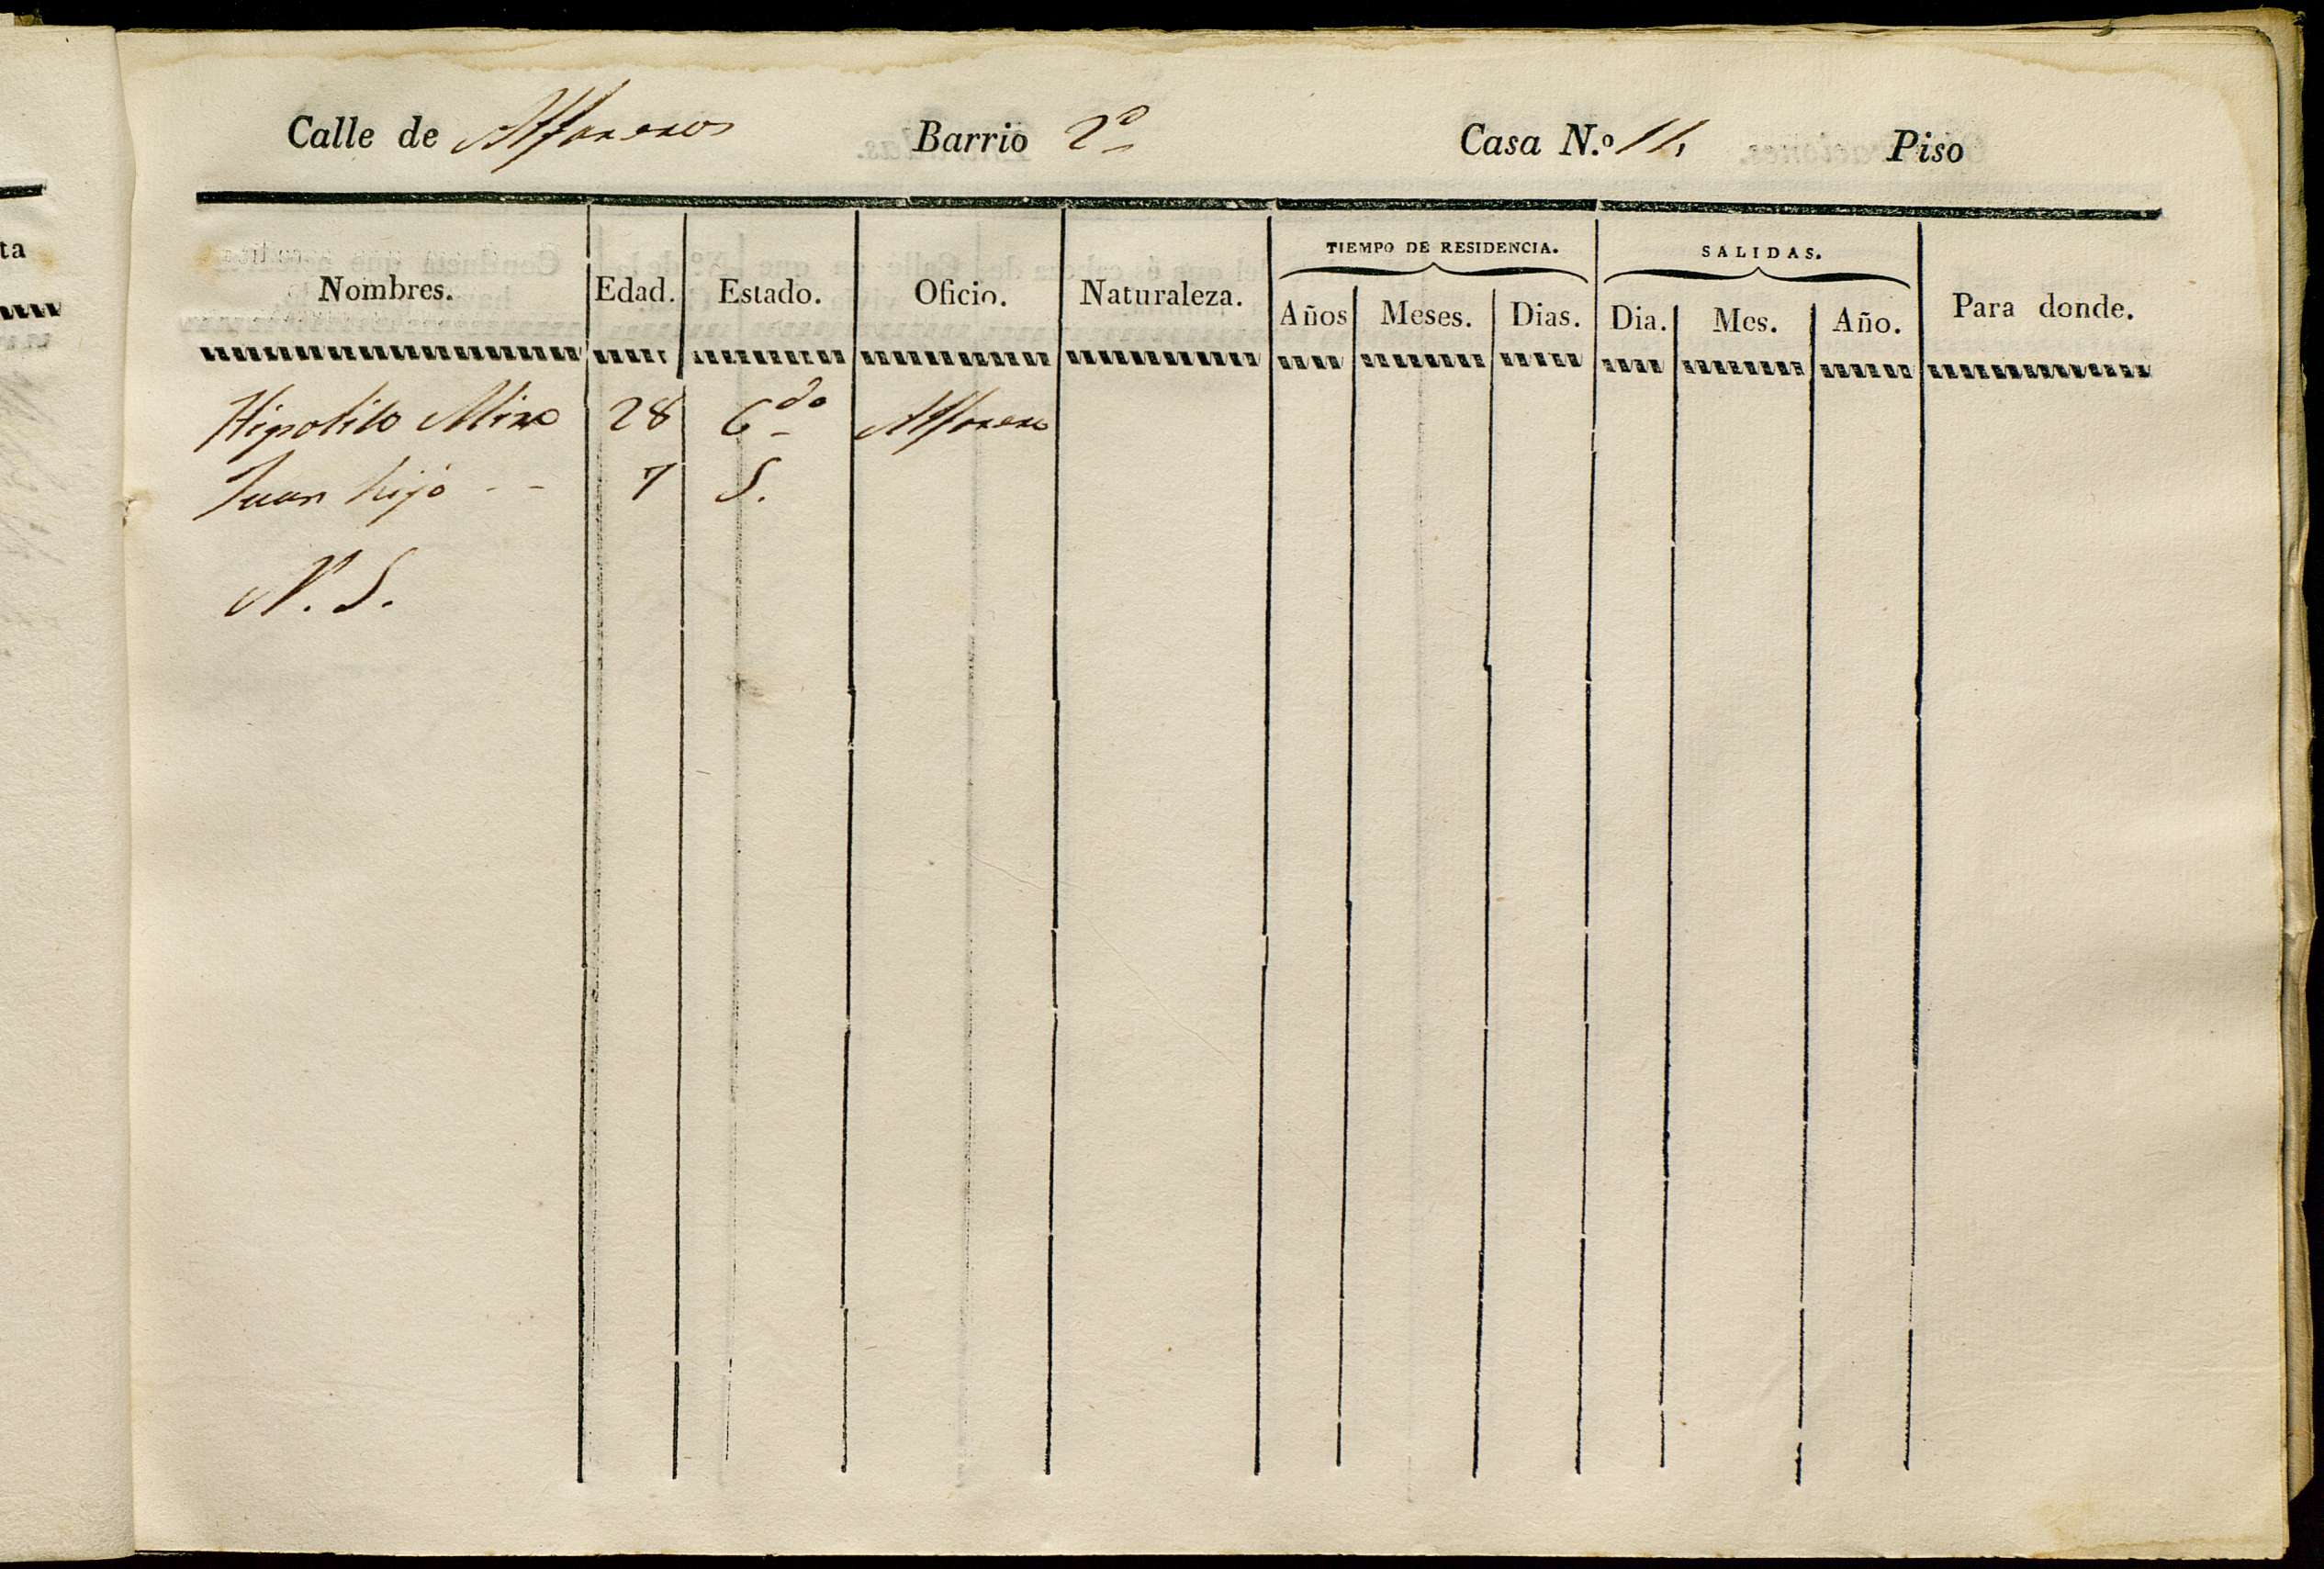 Calle de Alfareros Barrio 2º Casa N.º 11, Piso
ta
TIEMPO DE RESIDENCIA. SALIDAS.
Nombres. Edad. Estado. Oficio. Naturaleza. Años Meses. Dias. Dia. Mes. Año. Para donde.
Hipolito 28 Cdo Alfarero
Juan hijo - - 7 S.
N. S.